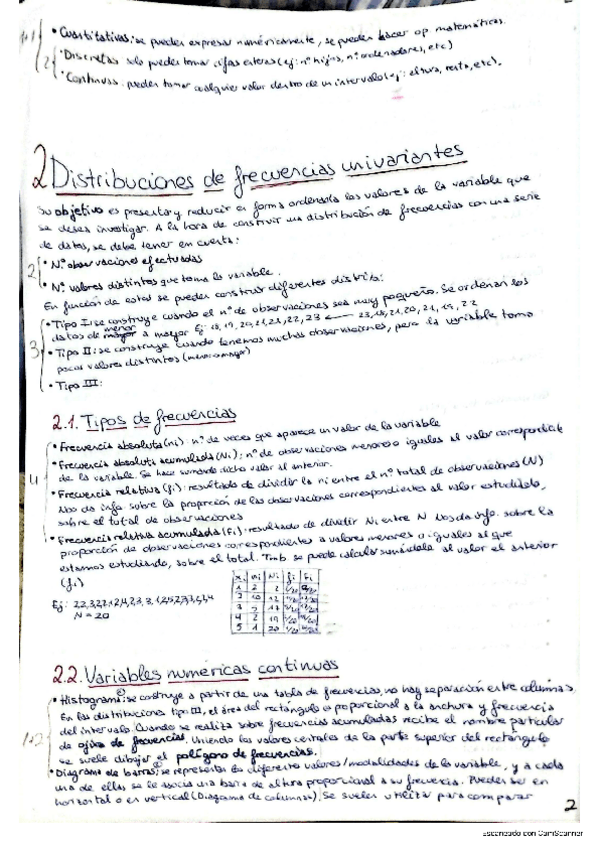 • Cuantitativas: se pueden expresar numéricamente, se pueden hacer op matemáticas.
• Discretas solo pueden tomar cifas enteras (ej: nº hijos, nº ordenadores, etc)
• Continuas. pueden tomar cualquier valor dentro de un intervalo (ej: altura, renta, etc).
2 Distribuciones de frecuencias univariantes
Su objetivo es presentar y reducir en forma ordenada los valores de la variable que
se desea investigar. A la hora de construir una distribución de frecuencias con una serie
de datos, se debe tener en cuenta:
2 • Nº observaciones efectuadas
• Nº valores distintos que toma la variable.
En función de estos se pueden construir diferentes distrib:
• Tipo I: se construye cuando el nº de observaciones sea muy pequeño. Se ordenan los
datos de menor a mayor Ej: 18, 19, 20, 21, 21, 22, 23 ← 23, 18, 21, 20, 21, 19, 22
3 • Tipo II: se construye cuando tenemos muchas observaciones, pero la variable toma
pocos valores distintos (menor a mayor)
• Tipo III:
2.1. Tipos de frecuencias
• Frecuencia absoluta (ni): nº de veces que aparece un valor de la variable
• Frecuencia absoluta acumulada (Ni): nº de observaciones menores o iguales al valor correspondiente
de la variable. Se hace sumando dicho valor al anterior.
4 • Frecuencia relativa (fi): resultado de dividir la ni entre el nº total de observaciones (N)
Nos da info sobre la proporción de las observaciones correspondientes al valor estudiado,
sobre el total de observaciones
• Frecuencia relativa acumulada (Fi): resultado de dividir Ni entre N Nos da info. sobre la
proporción de observaciones correspondientes a valores menores o iguales al que
estamos estudiando, sobre el total. Tmb. se puede calcular sumándole al valor el anterior
(fi)
Ej:
N = 20
xi ni Ni fi Fi
1 2 2
2 10 12
3 5 17
4 2 19
5 1 20
2.2. Variables numéricas continuas
• Histograma: se construye a partir de una tabla de frecuencias, no hay separación entre columnas.
En las distribuciones tipo III, el área del rectángulo es proporcional a la anchura y frecuencia
del intervalo. Cuando se realiza sobre frecuencias acumuladas recibe el nombre particular
de ojiva de frecuencias. Uniendo los valores centrales de la parte superior del rectángulo
se suele dibujar el polígono de frecuencias.
• Diagrama de barras: se representan los diferentes valores/modalidades de la variable, y a cada
una de ellas se le asocia una barra de altura proporcional a su frecuencia. Pueden ser en
horizontal o en vertical (Diagrama de columnas). Se suelen utilizar para comparar
2
Escaneado con CamScanner